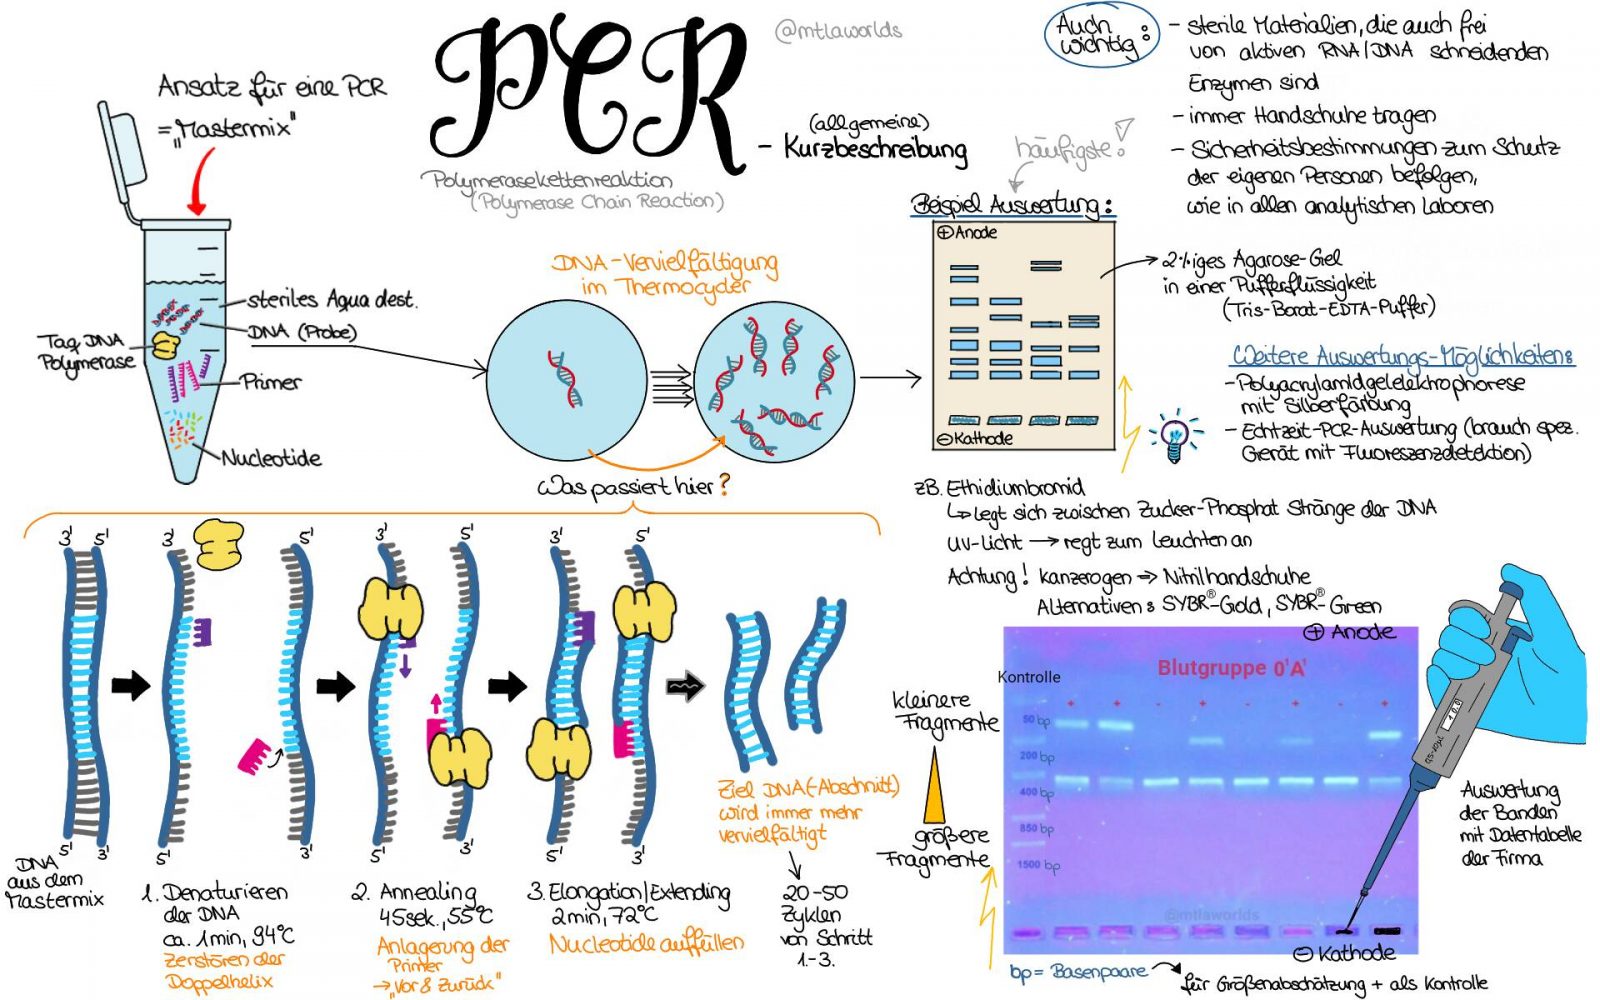 PCR
@mtlaworlds
- (allgemeine)
Kurzbeschreibung
Polymerasekettenreaktion
(Polymerase Chain Reaction)
Ansatz für eine PCR
= „Mastermix"
steriles Aqua dest.
DNA (Probe)
Taq DNA
Polymerase
Primer
Nucleotide
DNA-Vervielfältigung
im Thermocycler
Was passiert hier?
Auch
wichtig:
- sterile Materialien, die auch frei
von aktiven RNA/DNA schneidenden
Enzymen sind
- immer Handschuhe tragen
- Sicherheitsbestimmungen zum Schutz
der eigenen Personen befolgen,
wie in allen analytischen Laboren
häufigste!
Beispiel Auswertung:
⊕ Anode
⊖ Kathode
2%iges Agarose-Gel
in einer Pufferflüssigkeit
(Tris-Borat-EDTA-Puffer)
Weitere Auswertungs-Möglichkeiten:
- Polyacrylamidgelelektrophorese
mit Silberfärbung
- Echtzeit-PCR-Auswertung (brauch spez.
Gerät mit Fluoreszenzdetektion)
zB. Ethidiumbromid
↳ legt sich zwischen Zucker-Phosphat Stränge der DNA
UV-Licht → regt zum Leuchten an
Achtung! Kanzerogen => Nitrilhandschuhe
Alternativen: SYBR®-Gold, SYBR®-Green
3' 5'
3' 5'
3' 5'
3' 5'
5' 3'
5' 3'
5' 3'
5' 3'
DNA
aus dem
Mastermix
1. Denaturieren
der DNA
ca. 1min, 94°C
Zerstören der
Doppelhelix
2. Annealing
45sek., 55°C
Anlagerung der
Primer
→ „Vor & Zurück"
3. Elongation/Extending
2min, 72°C
Nucleotide auffüllen
Ziel DNA(-Abschnitt)
wird immer mehr
vervielfältigt
20-50
Zyklen
von Schritt
1.-3.
⊕ Anode
Kontrolle
Blutgruppe 0¹A¹
+ + - + - + - +
50 bp
200 bp
400 bp
850 bp
1500 bp
kleinere
Fragmente
größere
Fragmente
@mtlaworlds
⊖ Kathode
0,5-10µl
100
Auswertung
der Banden
mit Datentabelle
der Firma
bp = Basenpaare
für Größenabschätzung + als Kontrolle